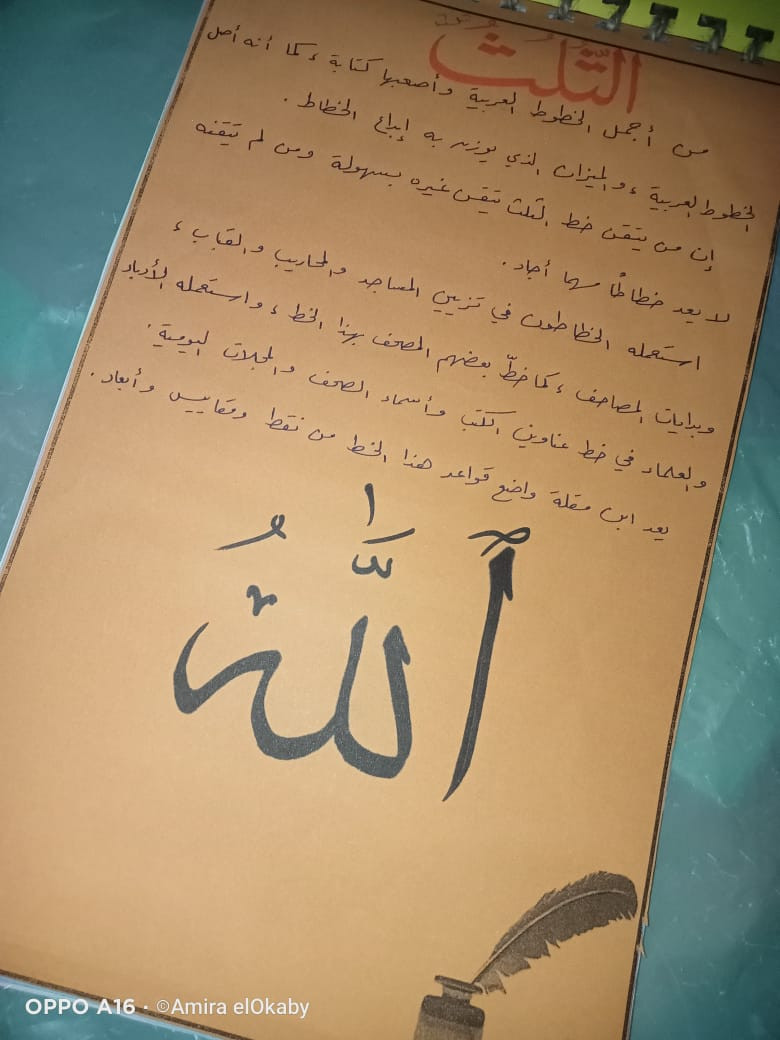 الثُّلُثُ
من أجمل الخطوط العربية وأصعبها كتابة، كما أنه أصل
الخطوط العربية، والميزان الذي يوزن به إبداع الخطاط.
إن من يتقن خط الثلث يتقن غيره بسهولة ومن لم يتقنه
لا يعد خطاطًا مهما أجاد.
استعمله الخطاطون في تزيين المساجد والمحاريب والقباب،
وبدايات المصاحف، كما خطّ بعضهم المصحف بهذا الخط، واستعمله الأدباء
والعلماء في خط عناوين الكتب وأسماء الصحف والمجلات اليومية.
يعد ابن مقلة واضع قواعد هذا الخط من نقط ومقاييس وأبعاد.
ٱللَّهُ
OPPO A16 · ©Amira elOkaby